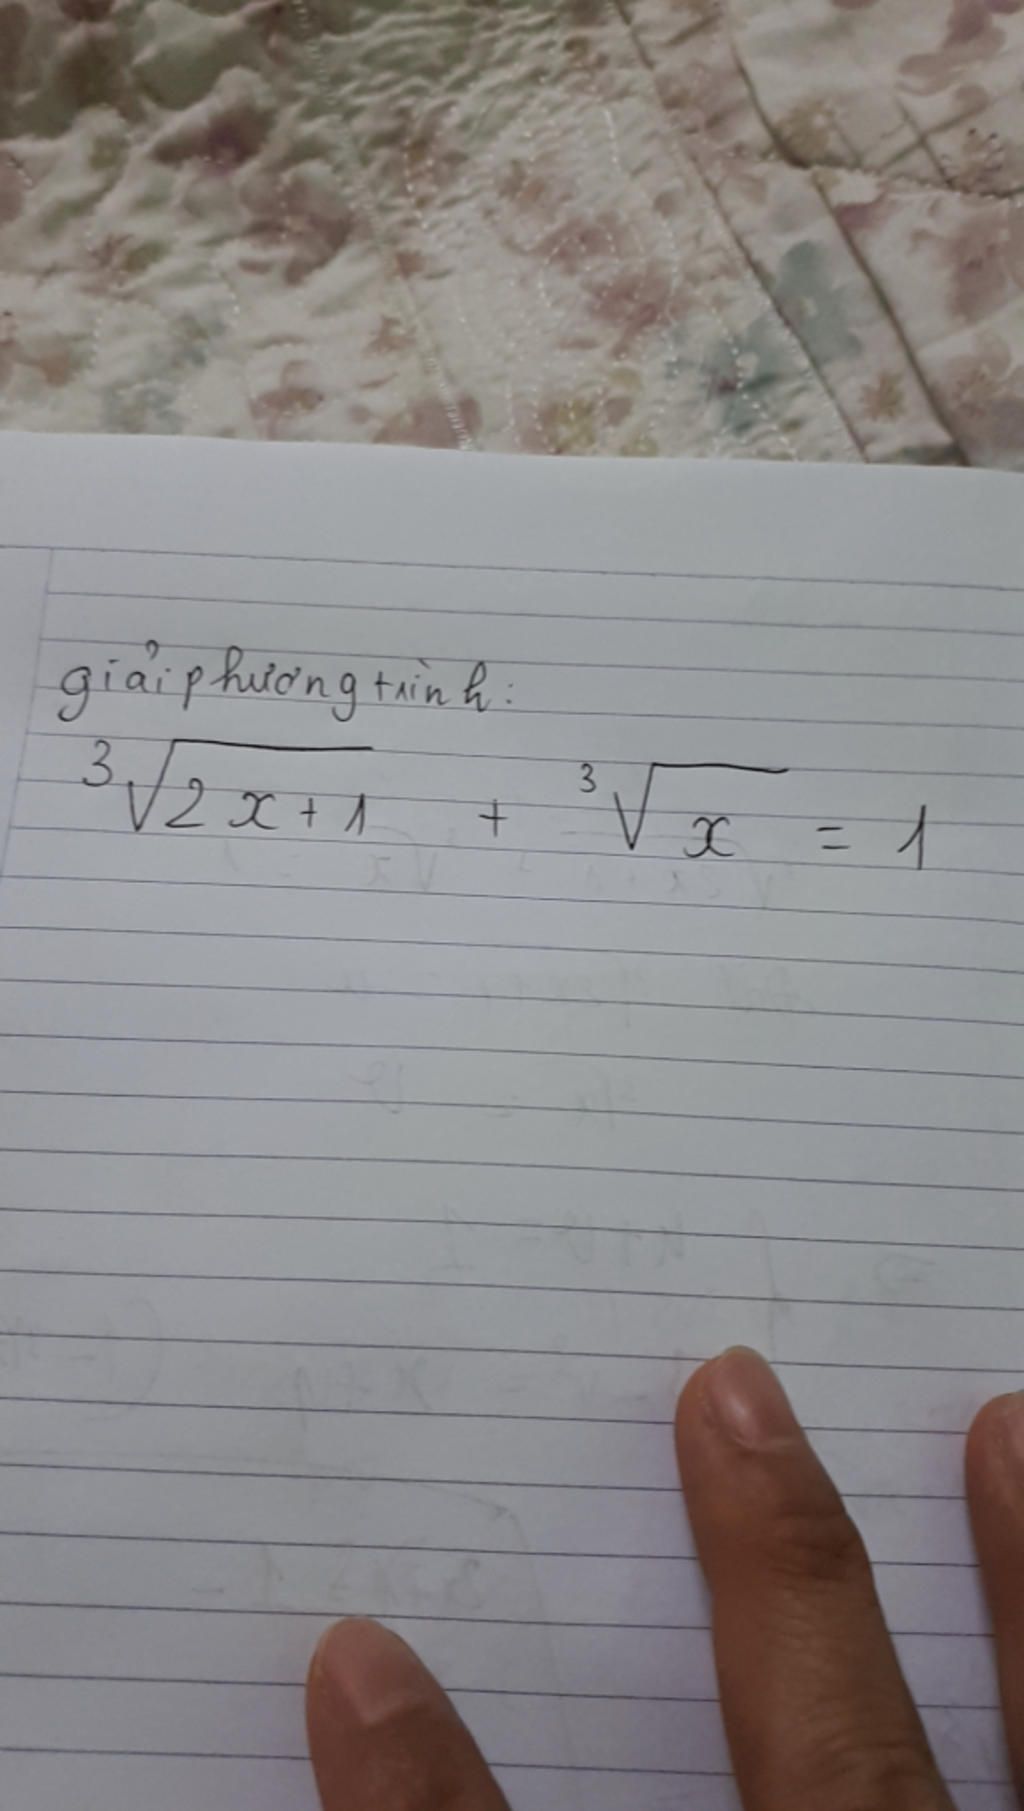 giải phương trình:
∛2x+1 + ∛x = 1